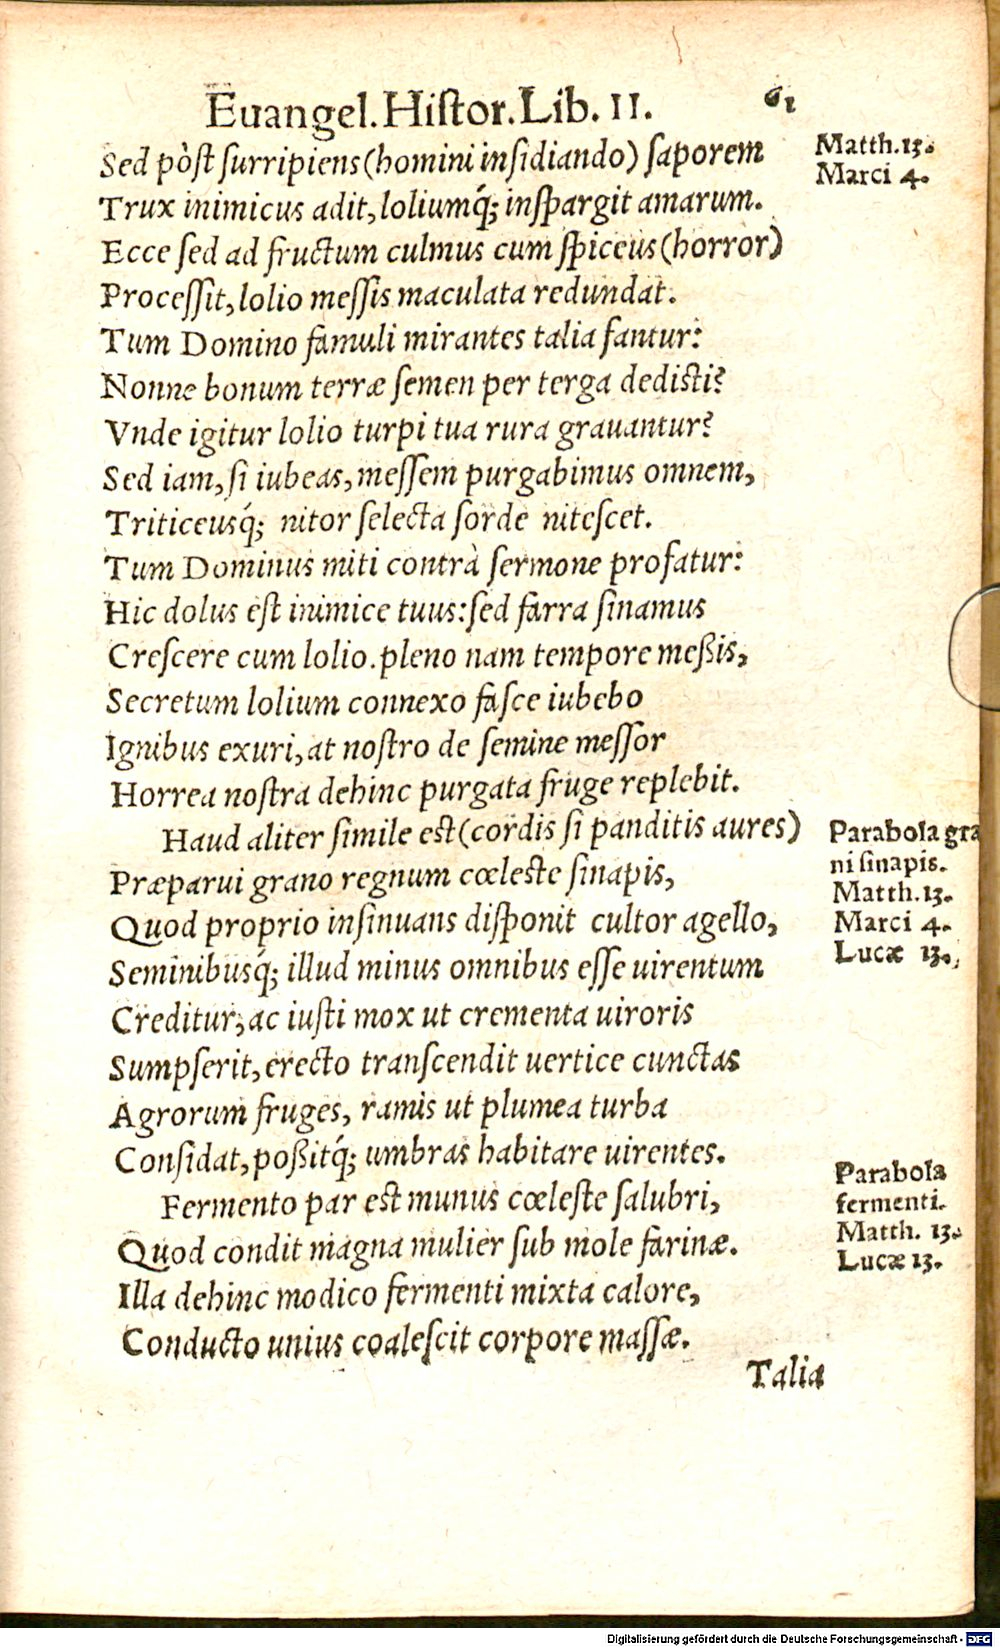 Euangel. Hiſtor. Lib. II. 61
Sed pòſt ſurripiens (homini inſidiando) ſaporem
Matth. 13.
Marci 4.
Trux inimicus adit, loliumq́; inſpargit amarum.
Ecce ſed ad fructum culmus cum ſpiceus (horror)
Proceſſit, lolio meſſis maculata redundat.
Tum Domino famuli mirantes talia fantur:
Nonne bonum terræ ſemen per terga dediſti?
Vnde igitur lolio turpi tua rura grauantur?
Sed iam, ſi iubeas, meſſem purgabimus omnem,
Triticeusq́; nitor ſelecta ſorde niteſcet.
Tum Dominus miti contrà ſermone profatur:
Hic dolus eſt inimice tuus: ſed farra ſinamus
Creſcere cum lolio. pleno nam tempore meßis,
Secretum lolium connexo faſce iubebo
Ignibus exuri, at noſtro de ſemine meſſor
Horrea noſtra dehinc purgata fruge replebit.
Haud aliter ſimile eſt (cordis ſi panditis aures)
Parabola gra
ni ſinapis.
Matth. 13.
Marci 4.
Lucæ 13.
Præparui grano regnum cœleſte ſinapis,
Quod proprio inſinuans diſponit cultor agello,
Seminibusq́; illud minus omnibus eſſe uirentum
Creditur, ac iuſti mox ut crementa uiroris
Sumpſerit, erecto tranſcendit uertice cunctas
Agrorum fruges, ramis ut plumea turba
Conſidat, poßitq́; umbras habitare uirentes.
Fermento par eſt munus cœleſte ſalubri,
Parabola
fermenti.
Matth. 13.
Lucæ 13.
Quod condit magna mulier ſub mole farinæ.
Illa dehinc modico fermenti mixta calore,
Conducto unius coaleſcit corpore maſſæ.
Talia
Digitalisierung gefördert durch die Deutsche Forschungsgemeinschaft - DFG